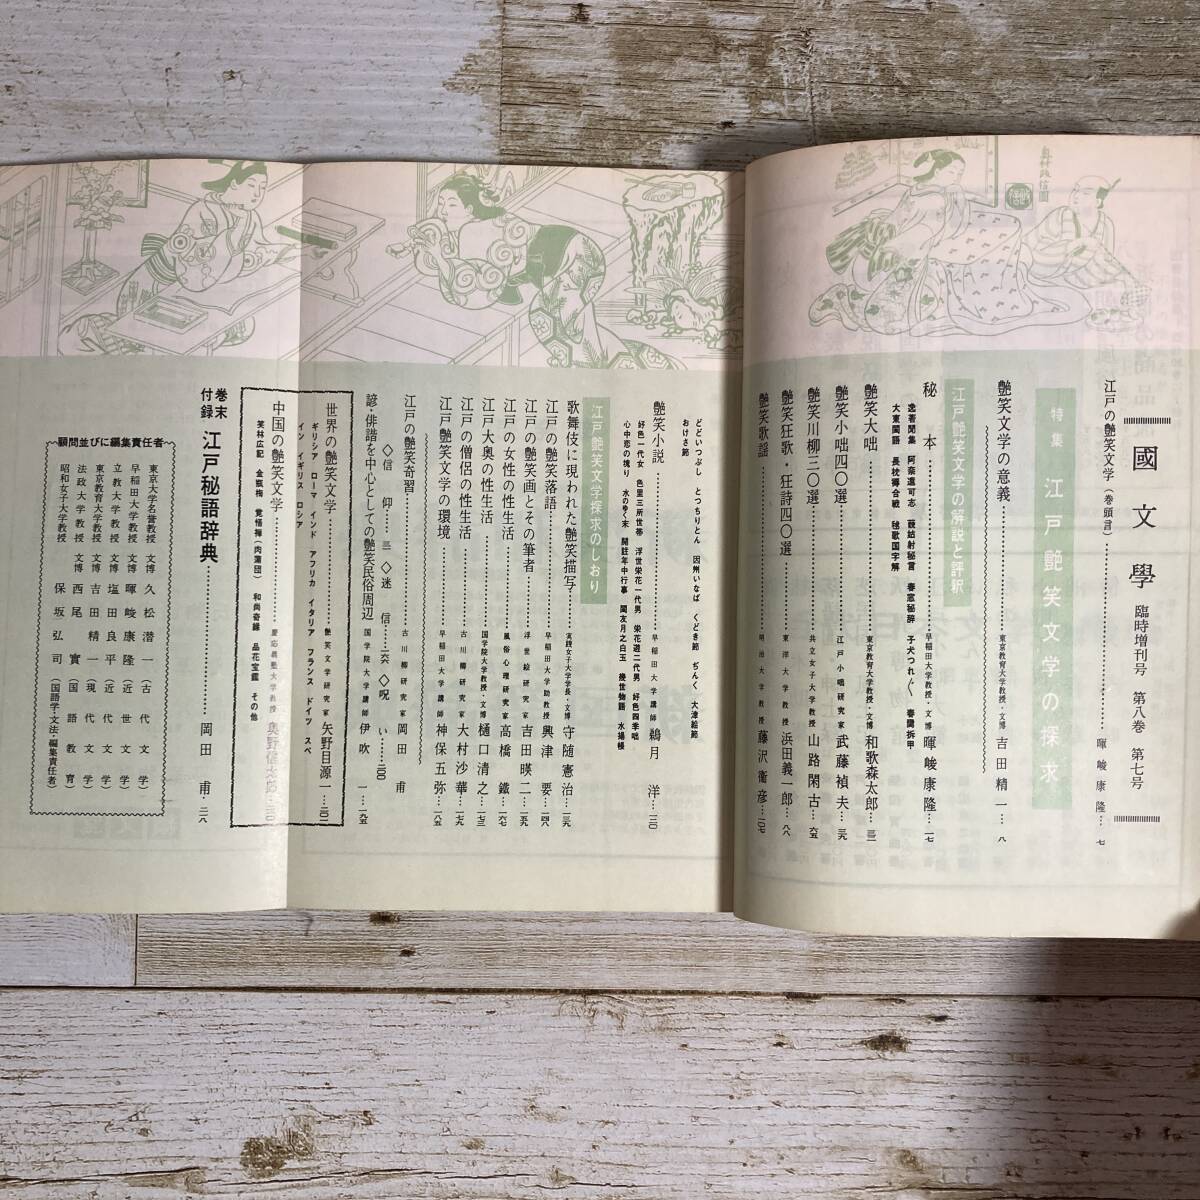 國文學 臨時増刊号 第八巻 第七号
江戸の艶笑文学（巻頭言）…暉峻康隆…七
特集 江戸艶笑文学の探求
艶笑文学の意義…東京教育大学教授・文博 吉田精一…八
江戸艶笑文学の解説と評釈
秘本…早稲田大学教授・文博 暉峻康隆…一七
逸著聞集 阿奈遠可志 藐姑射秘言 春窓秘辞 子犬つれ〴〵 春臠拆甲
大東閨語 長枕褥合戦 毬歌国字解
艶笑大咄…東京教育大学教授・文博 和歌森太郎…三一
艶笑小咄四〇選…江戸小咄研究家 武藤禎夫…三九
艶笑川柳三〇選…共立女子大学教授 山路閑古…六五
艶笑狂歌・狂詩四〇選…東洋大学教授 浜田義一郎…八八
艶笑歌謡…明治大学教授 藤沢衛彦…一〇七
どどいつぶし とつちりとん 因州いなば くどき節 ぢんく 大津絵節
おけさ節
艶笑小説…早稲田大学講師 鵜月洋…一二〇
好色一代女 色里三所世帯 浮世栄花一代男 栄花遊二代男 好色四季咄
心中恋の塊り 水のゆく末 閨註年中行事 閨友月之白玉 幾世物語 水揚帳
江戸艶笑文学探求のしおり
歌舞伎に現われた艶笑描写…実践女子大学学長・文博 守随憲治…一三九
江戸の艶笑落語…早稲田大学助教授 興津要…一四八
江戸の艶笑画とその筆者…浮世絵研究家 吉田暎二…一五九
江戸の女性の性生活…風俗心理研究家 高橋鐵…一六七
江戸大奥の性生活…国学院大学教授・文博 樋口清之…一七三
江戸の僧侶の性生活…古川柳研究家 大村沙華…一七九
江戸艶笑文学の環境…早稲田大学講師 神保五弥…一八五
江戸の艶笑奇習…古川柳研究家 岡田甫
◇信仰…一三 ◇迷信…一六六 ◇呪い…二〇〇
諺・俳諧を中心としての艶笑民俗周辺…国学院大学講師 伊吹一…一九五
世界の艶笑文学…艶笑文学研究家 矢野目源一…二〇一
ギリシア ローマ インド アフリカ イタリア フランス ドイツ スペ
イン イギリス ロシア
中国の艶笑文学…慶応義塾大学教授 奥野信太郎…二一〇
笑林広記 金瓶梅 覚悟禅（肉蒲団） 和尚奇縁 品花宝鑑 その他
巻末付録 江戸秘語辞典…岡田甫…二一八
顧問並びに編集責任者
東京大学名誉教授 文博 久松潜一（古代文学）
早稲田大学教授 文博 暉峻康隆（近世文学）
立教大学教授 文博 塩田良平（近代文学）
東京教育大学教授 文博 吉田精一（現代文学）
法政大学教授 文博 西尾實（国語教育）
昭和女子大学教授 保坂弘司（国語学・文法・編集責任者）
奥村政信圖